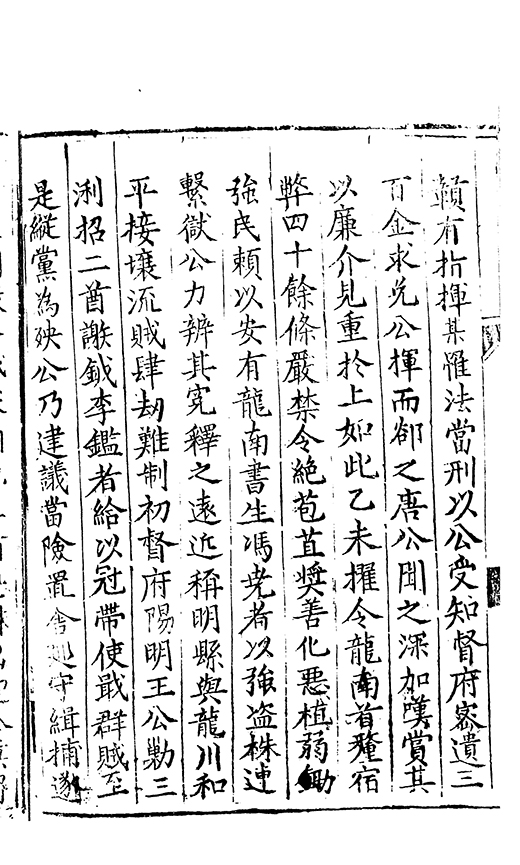 賴有指揮某罹法當刑以公受知督府密遺三
百金求免公揮而郤之唐公聞之深加嘆賞其
以廉介見重於上如此乙未擢令龍南首釐宿
弊四十餘條嚴禁令絕苞苴奬善化惡植弱鋤
強民賴以安有龍南書生馮堯者以強盗株連
繫獄公力辨其寃釋之遠近称明縣與龍川和
平接壤流賊肆刼難制初督府陽明王公勦三
浰招二酋謝鉞李鑑者給以冠帶使戢群賊至
是縱黨為殃公乃建議當險置舎廵守緝捕遂